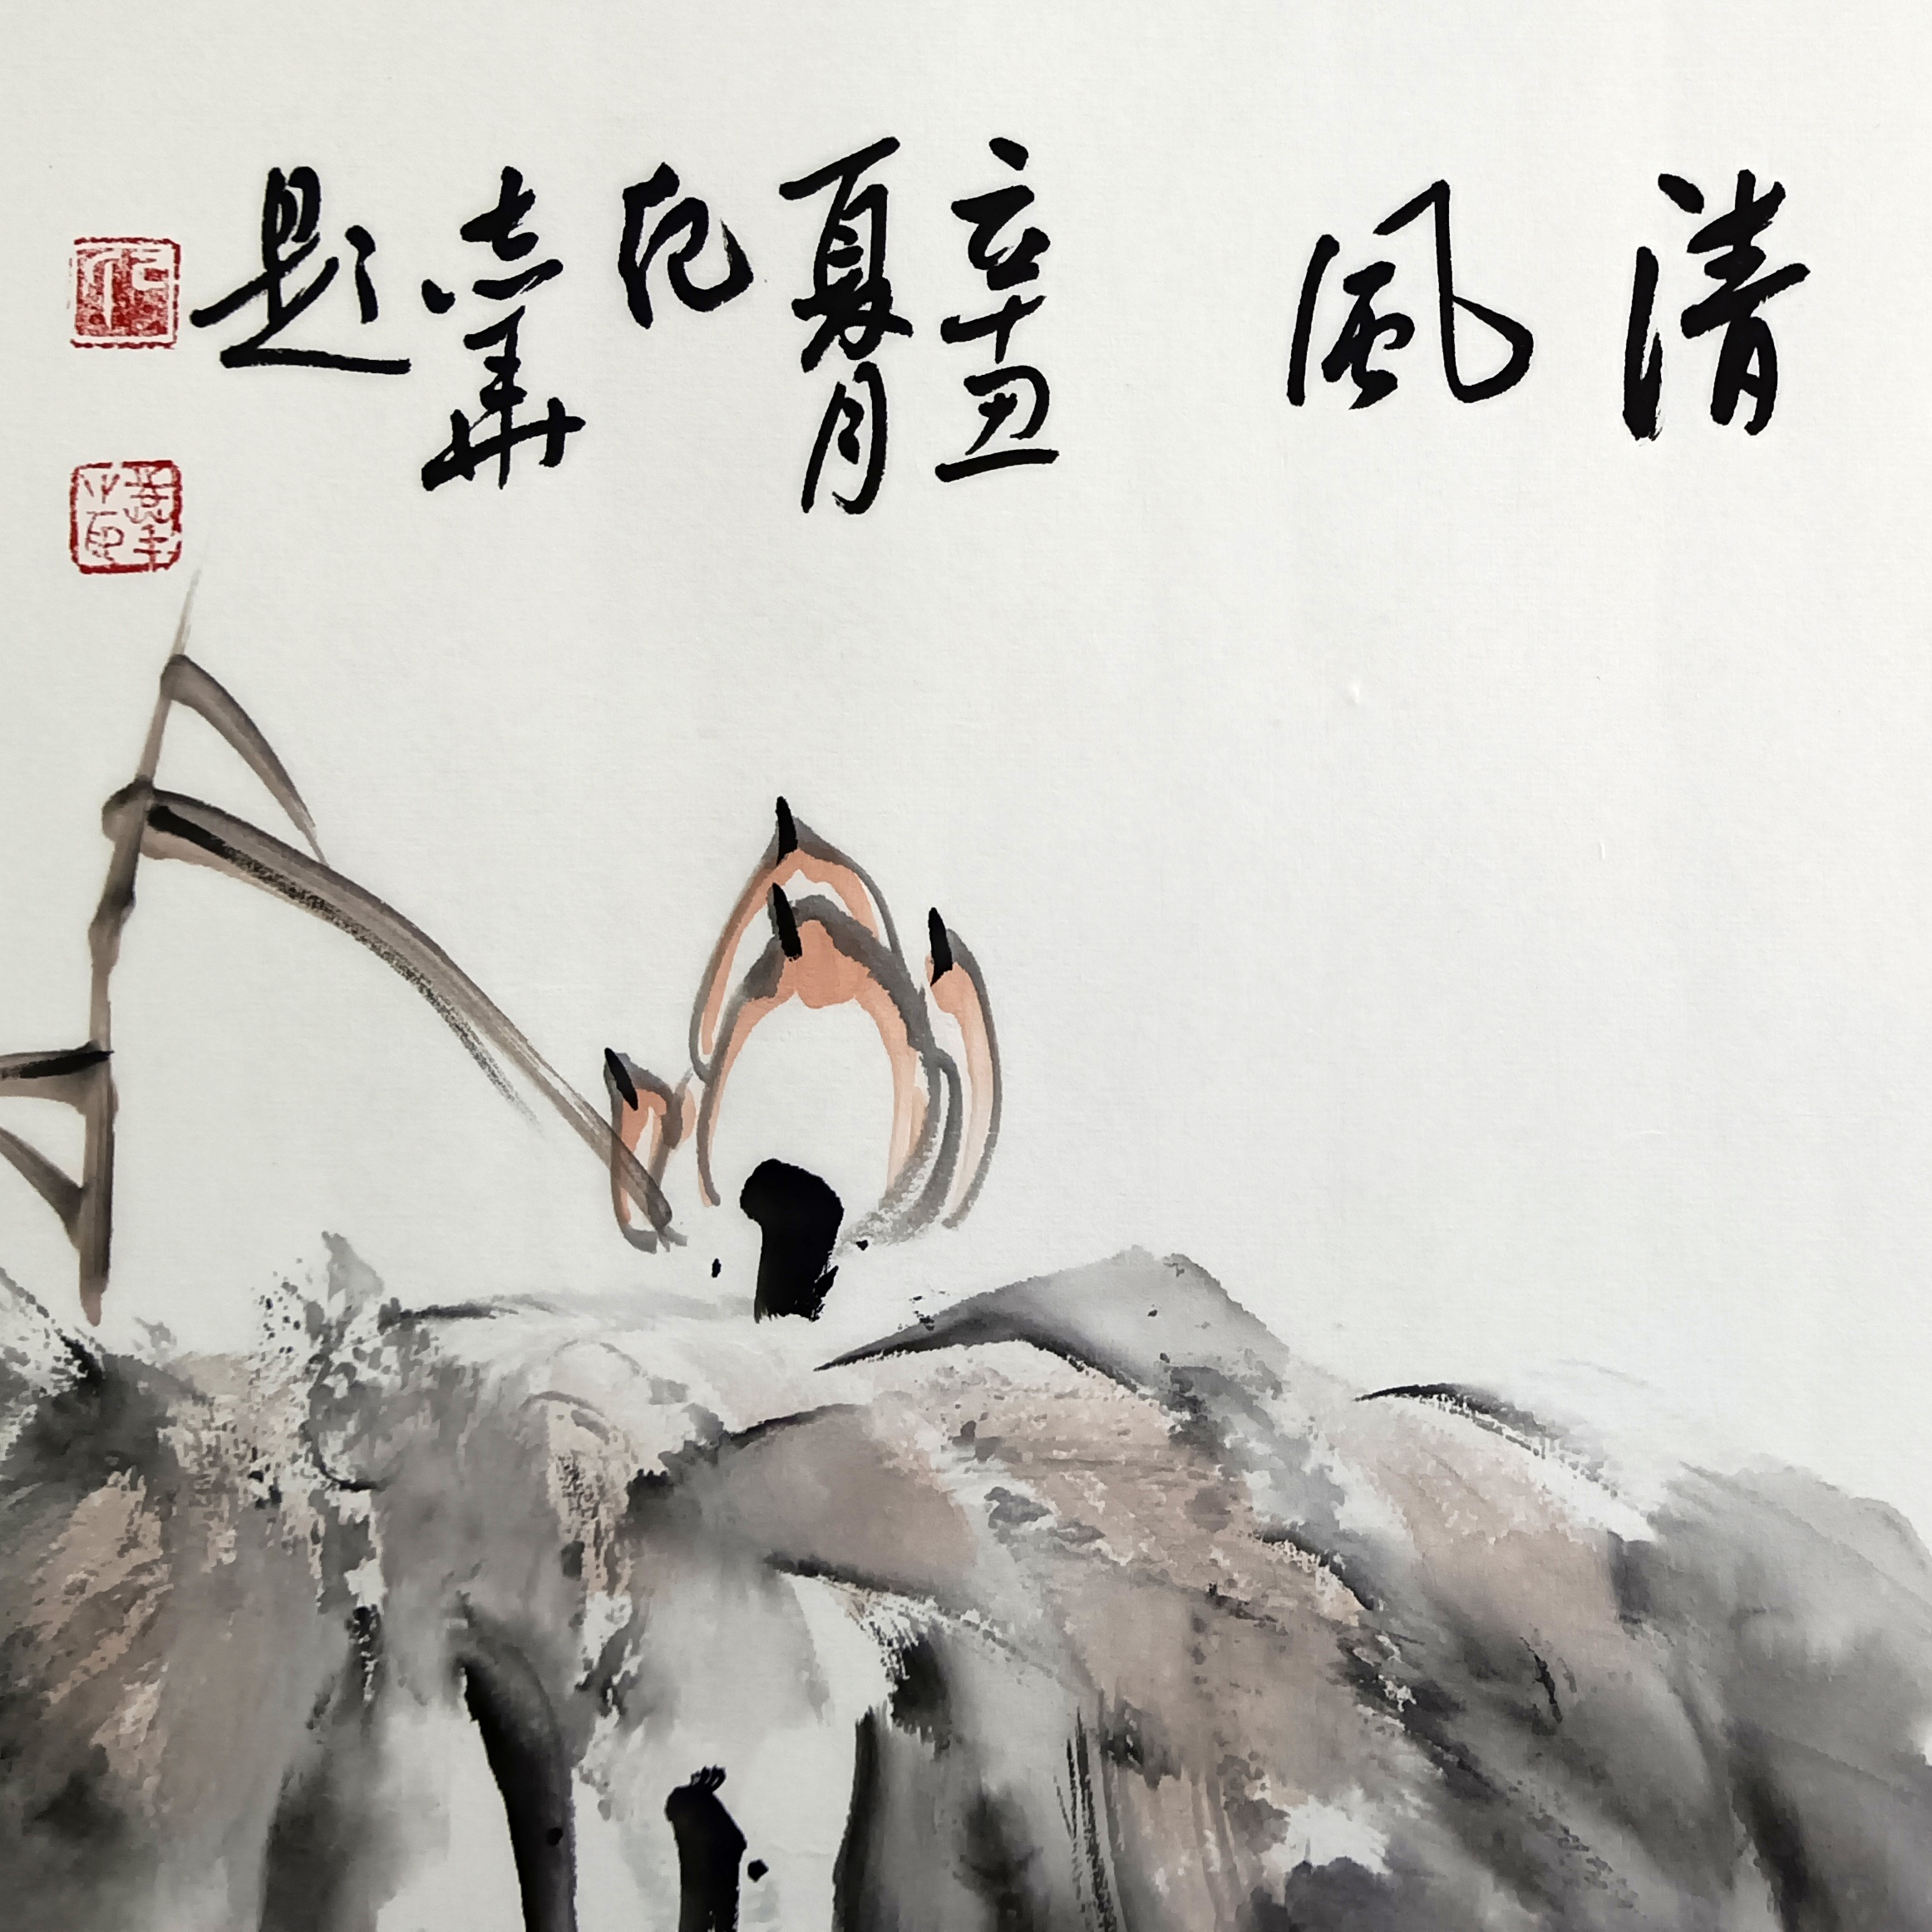 清
風
辛丑
夏月
范
志華
題